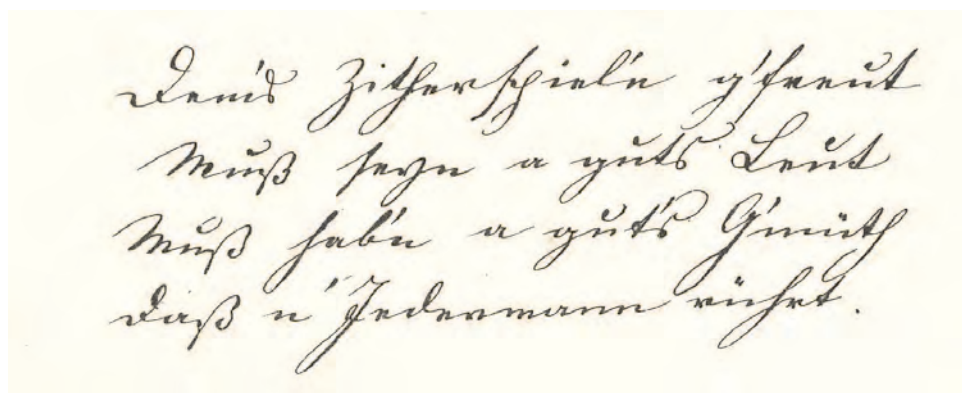 Dem's Zitherspiel'n g'freut
Muß seyn a guts Leut
Muß hab'n a gut's G'müth
Daß n' Jedermann rührt.